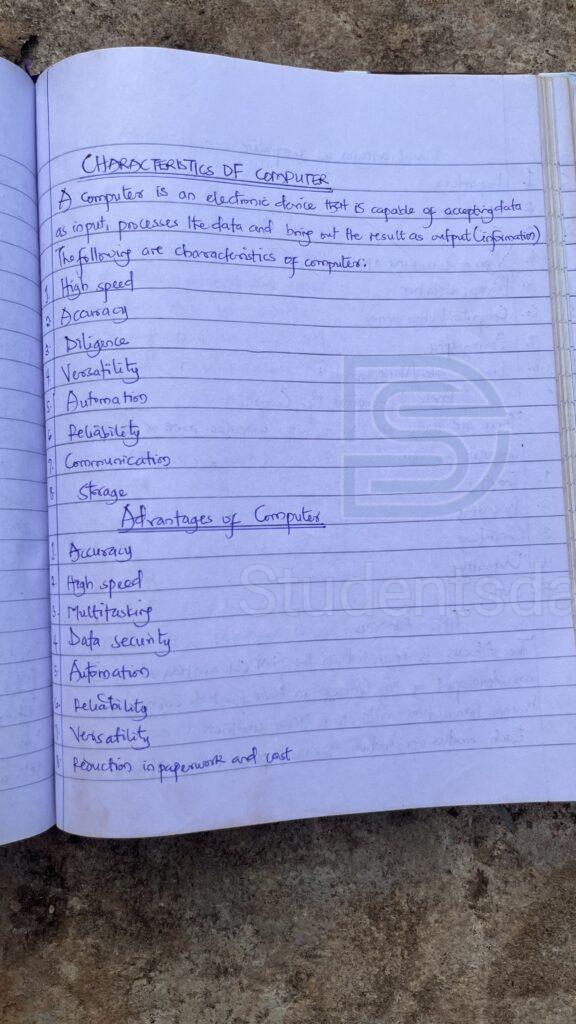 CHARACTERISTICS OF COMPUTER
A computer is an electronic device that is capable of accepting data
as input, processes the data and bring out the result as output (information)
The following are characteristics of computer.
1. High speed
2. Accuracy
3. Diligence
4. Versatility
5. Automation
6. Reliability
7. Communication
8. Storage
Advantages of Computer
1. Accuracy
2. High speed
3. Multitasking
4. Data security
5. Automation
6. Reliability
7. Versatility
8. Reduction in paperwork and cost
Studentsda